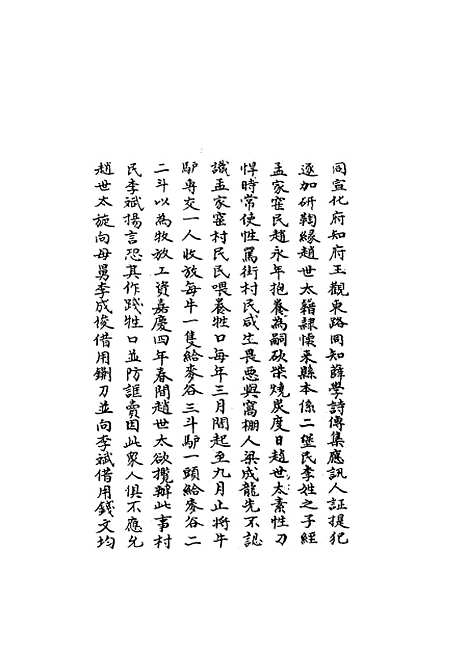 同宣化府知府王觀東路同知薛學詩傳集應訊人証提犯
逐加研鞫緣趙世太籍隸懷来縣本係二堡民李姓之子經
孟家窑民趙永年抱養為嗣砍柴燒炭度日趙世太素性刁
悍時常使性罵街村民咸生畏惡與窩棚人梁成龍先不認
識孟家窑村民民喂養牲口每年三月間起至九月止將牛
驴專交一人收放每牛一隻給麥谷三斗驴一頭給麥谷二
二斗以為牧放工資嘉慶四年春間趙世太欲攬辦此事村
民李斌揚言恐其作踐牲口並防誆賣因此衆人俱不應允
趙世太旋向母舅李成俊借用鍘刀並向李斌借用錢文均